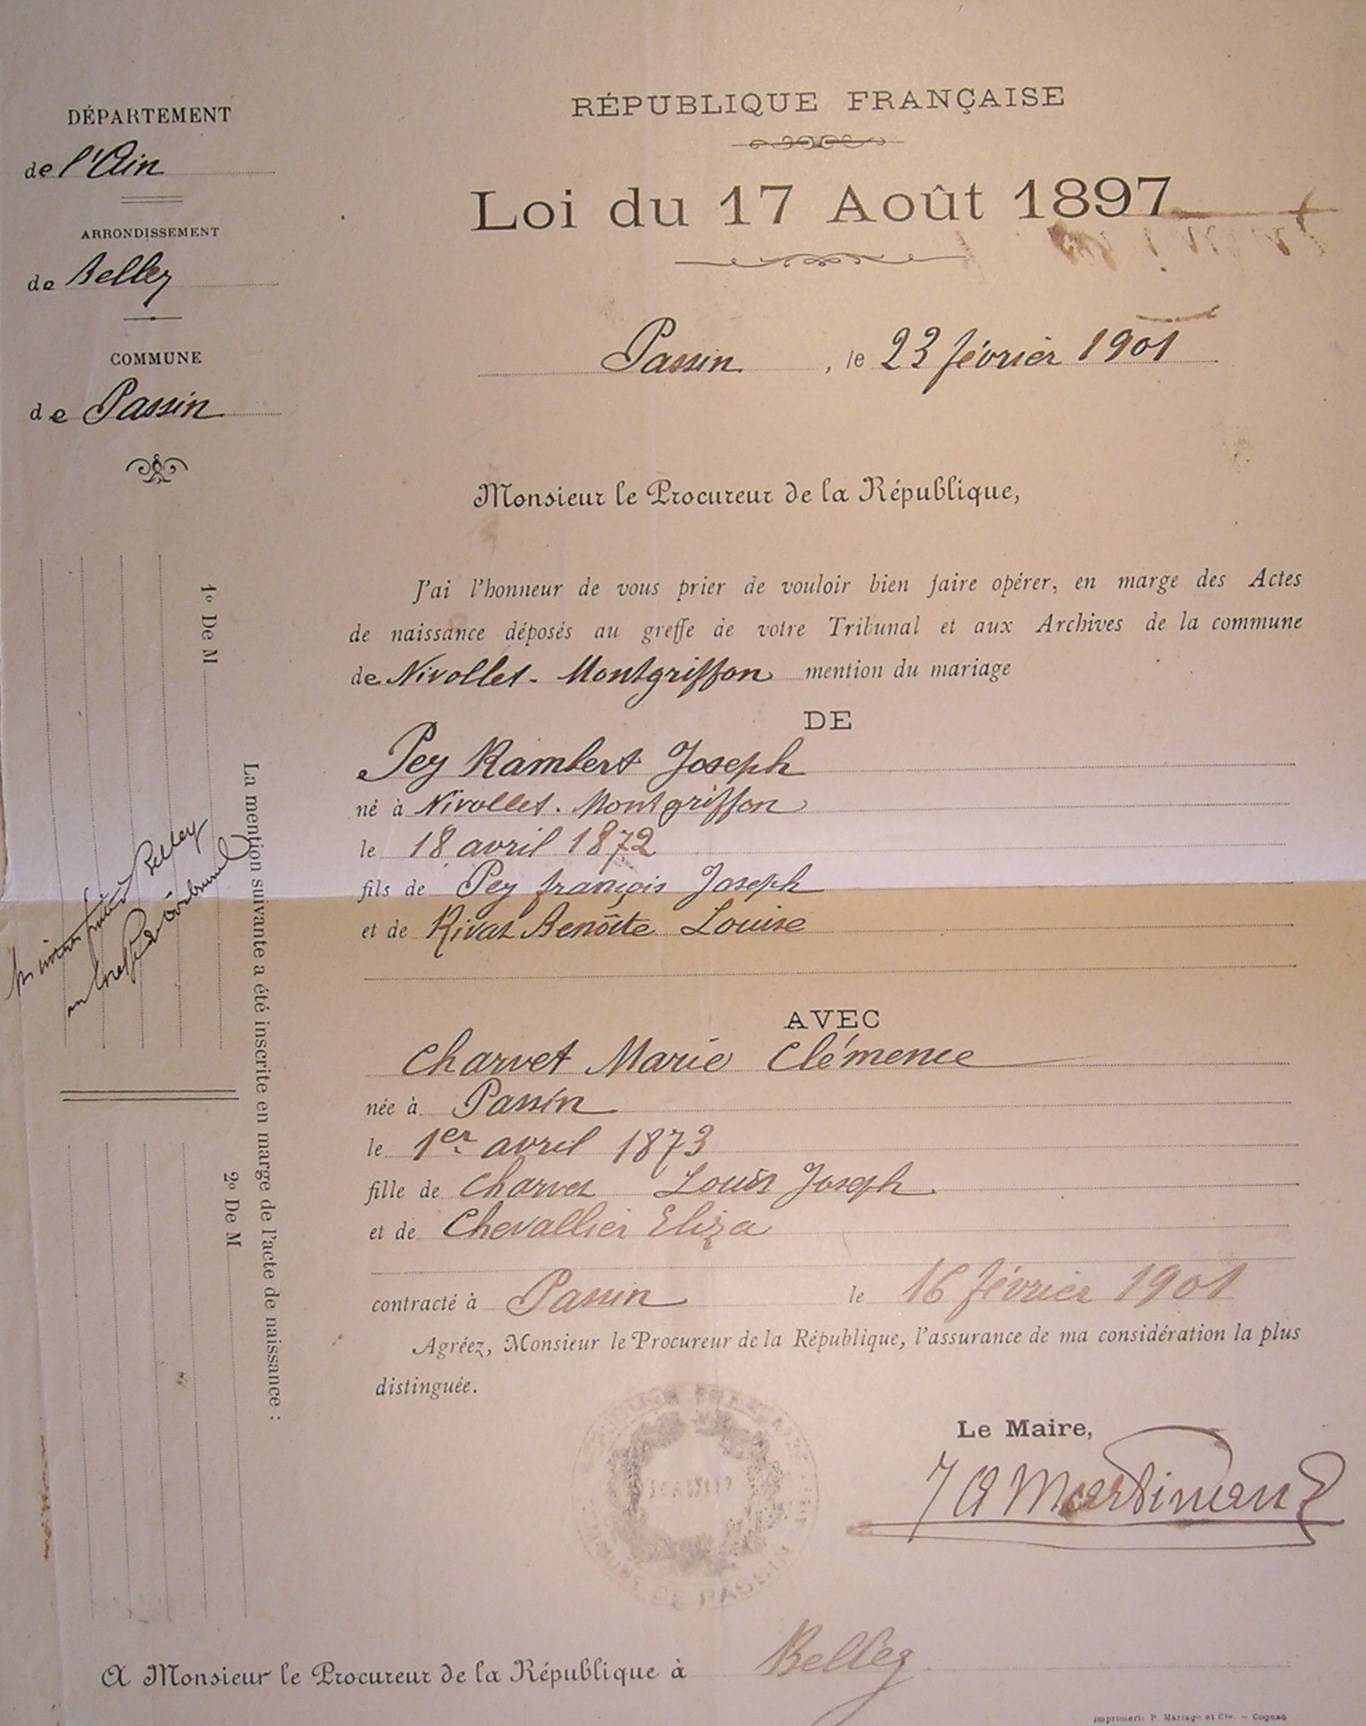 RÉPUBLIQUE FRANÇAISE
Loi du 17 Août 1897
DÉPARTEMENT
de l'Ain
ARRONDISSEMENT
de Belley
COMMUNE
de Passin
Passin, le 23 février 1901
Monsieur le Procureur de la République,
J'ai l'honneur de vous prier de vouloir bien faire opérer, en marge des Actes
de naissance déposés au greffe de votre Tribunal et aux Archives de la commune
de Nivollet-Montgriffon mention du mariage
DE
Pey Rambert Joseph
né à Nivollet-Montgriffon
le 18 avril 1872
fils de Pey françois Joseph
et de Rivat Benoîte Louise
AVEC
Charvet Marie Clémence
née à Passin
le 1er avril 1873
fille de Charvet Louis Joseph
et de Chevallier Eliza
contracté à Passin le 16 février 1901
Agréez, Monsieur le Procureur de la République, l'assurance de ma considération la plus
distinguée.
Le Maire,
RÉPUBLIQUE FRANÇAISE
COMMUNE DE PASSIN
A Monsieur le Procureur de la République à Belley
Imprimerie P. Mariage et Cie. — Cognac
La mention suivante a été inscrite en marge de l'acte de naissance :
1º De M
Belley
2º De M